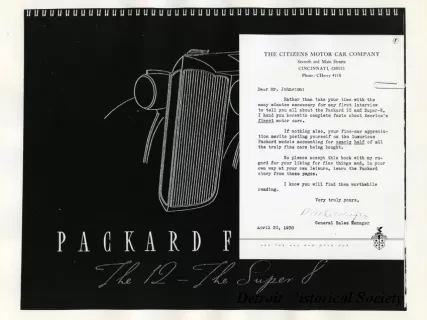 THE CITIZENS MOTOR CAR COMPANY
Seventh and Main Streets
CINCINNATI, OHIO
Phone: CHerry 4110
Dear Mr. Johnston:
Rather than take your time with the
many minutes necessary for any first interview
to tell you all about the Packard 12 and Super-8,
I hand you herewith complete facts about America's
finest motor cars.
If nothing else, your fine-car apprecia-
tion merits posting yourself on the luxurious
Packard models accounting for nearly half of all
the truly fine cars being bought.
So please accept this book with my re-
gard for your liking for fine things and, in your
own way at your own leisure, learn the Packard
story from these pages.
I know you will find them worthwhile
reading.
Very truly yours,
General Sales Manager
April 20, 1938
ASK THE MAN WHO OWNS ONE
PACKARD F
The 12 – The Super 8
Detroit Historical Society